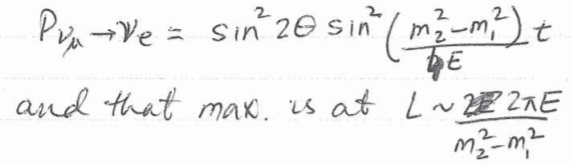 P_{νμ→νe} = sin² 2θ sin² ( (m₂² - m₁²) / 4E ) t
and that max. is at L ~ 2πE / (m₂² - m₁²)